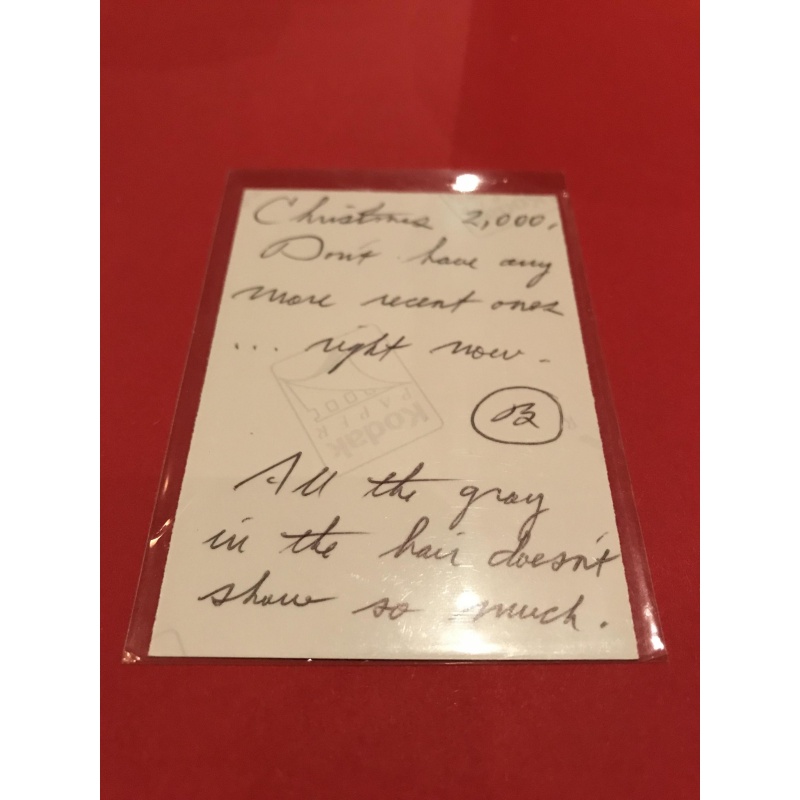 Christmas 2,000.
Don't have any
more recent ones
... right now.
B
Kodak
PAPER
All the gray
in the hair doesn't
show so much.